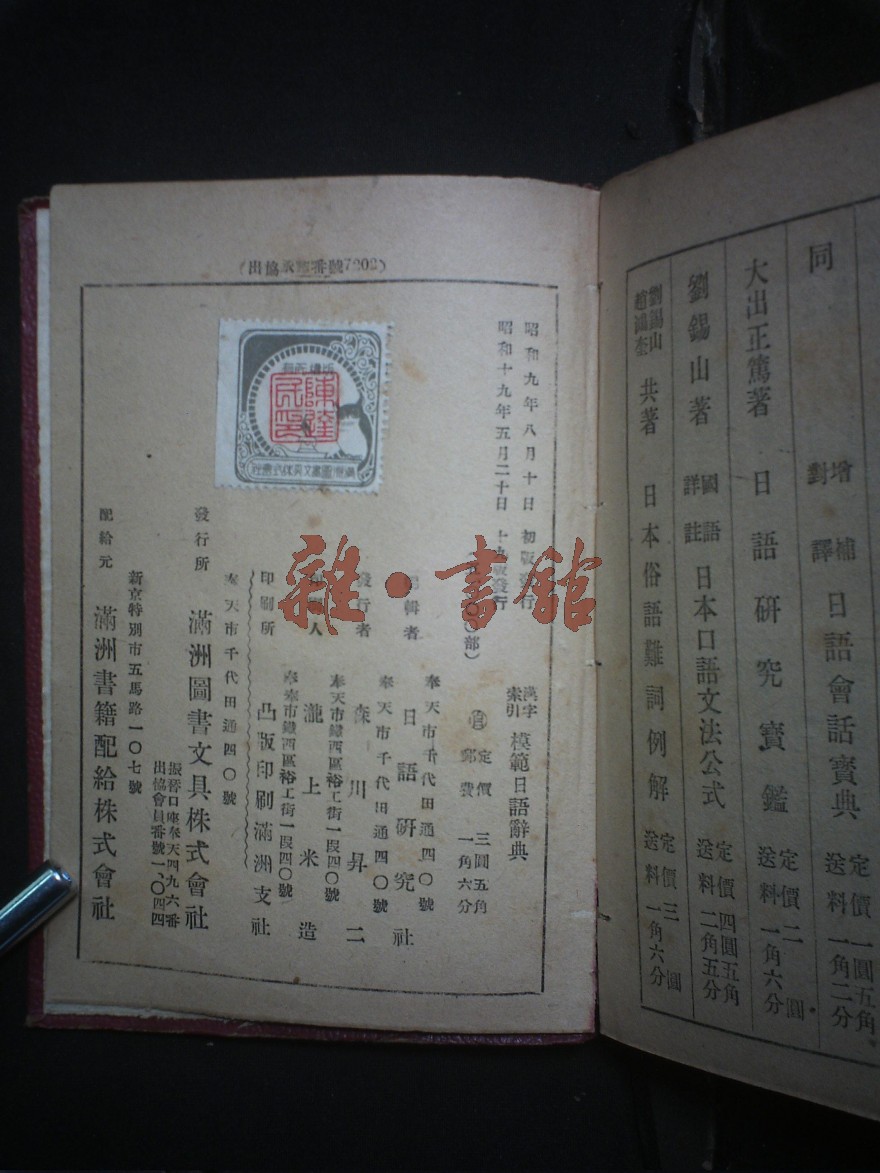 同　增補對譯　日語會話寶典　定價一圓五角　送料一角二分
大出正篤著　日語研究寶鑑　定價二圓　送料一角六分
劉錫山著　國語詳註　日本口語文法公式　定價四圓五角　送料二角五分
劉錫山　共著　日本俗語難詞例解　定價三圓　送料一角六分
昭和九年八月十日　初版發行
昭和十九年五月二十日
部)
漢字索引　模範日語辭典
定價　三圓五角
郵費　一角六分
奉天市千代田通四〇號
輯者　日語研究社
奉天市千代田通四〇號
發行者　森川昇二
奉天市鐵西區裕工街一段四〇號
人　瀧上米造
奉天市鐵西區裕工街一段四〇號
印刷所　凸版印刷滿洲支社
奉天市千代田通四〇號
發行所　滿洲圖書文具株式會社
振替口座奉天四九六番
出協會員番號一、〇四四
新京特別市五馬路一〇七號
配給元　滿洲書籍配給株式會社
雜·書館